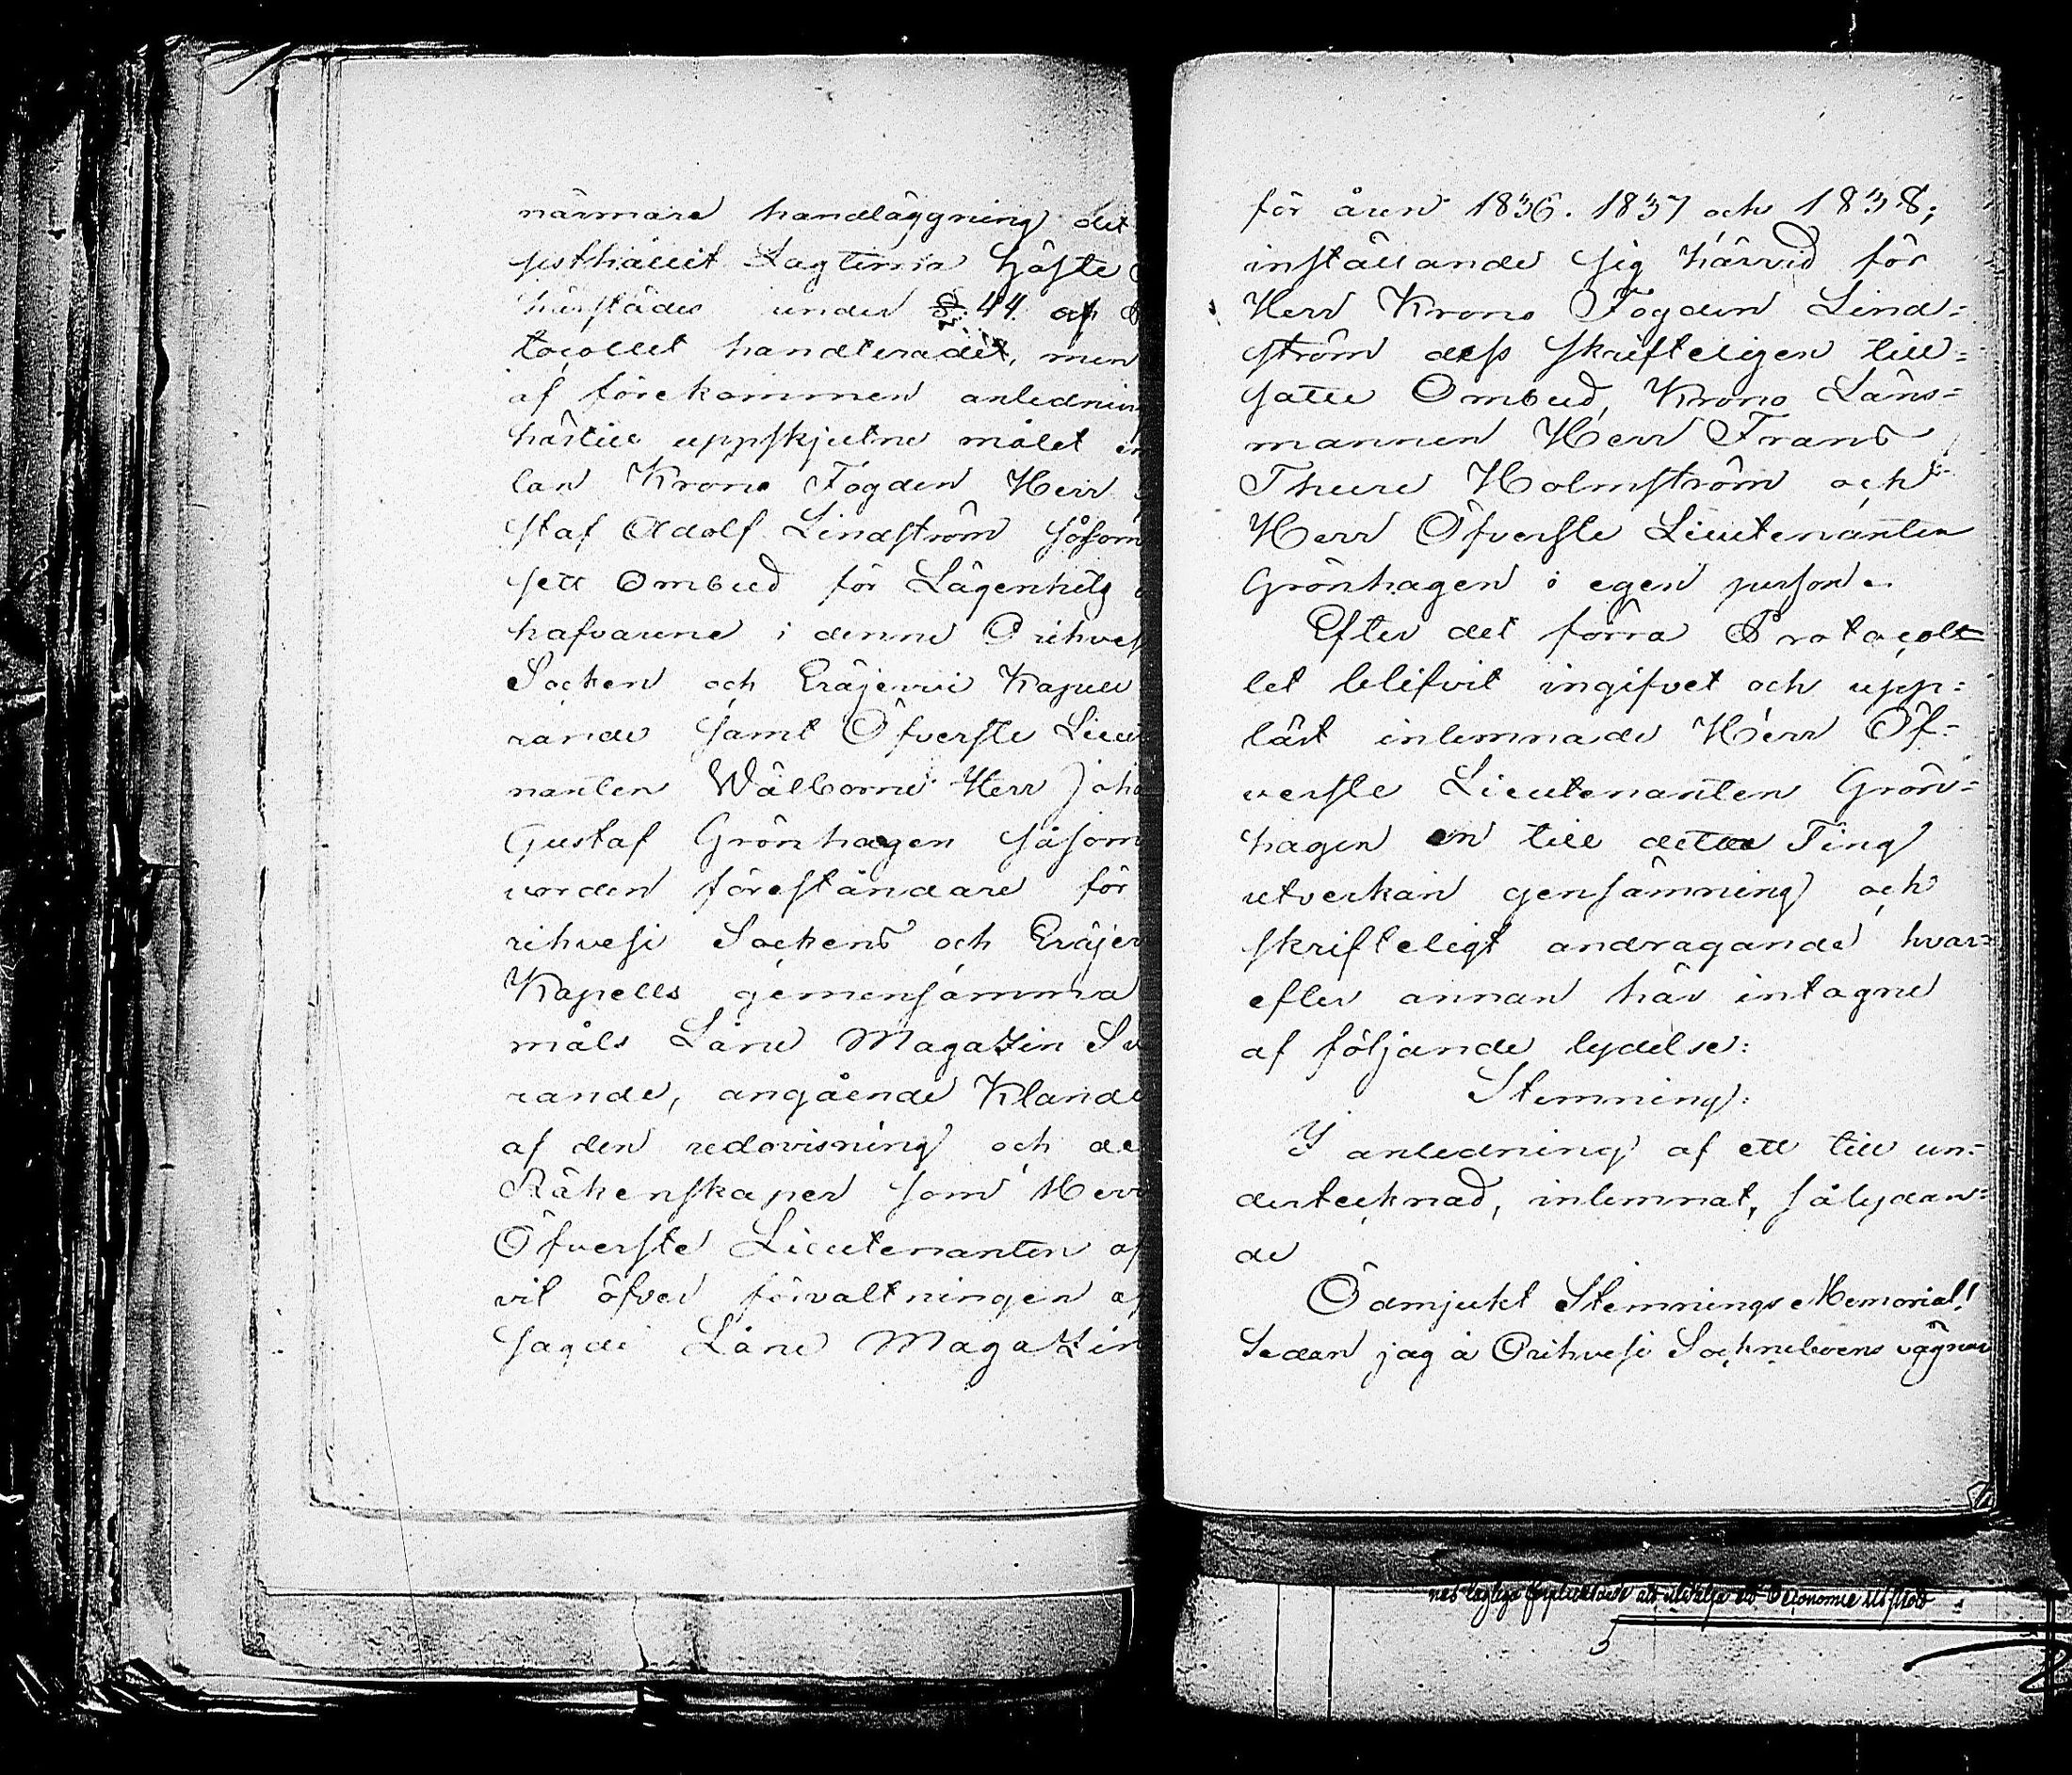 närmare handläggning det
sisthållit Lagtima Höste
härstädes under §. 44. af
tocollet handteradet, men
af förekommen anlednin
härtill uppskjutne målet
lan Krono Fogden Herr
staf Adolf Lindström såsom
sett Ombud för Lägenhets
hafvarene i denne Orihves
Socken och Eräjervi Kapell
rande samt Öfverste Lieut
nanten Wälborne Herr Joha
Gustaf Grönhagen såsom
vorden föreståndare för
rihvesi Sockens och Eräjer
Kapells gemensamma
måls Låne Magazin Sv
rande, angående Klande
af den redovisning och de
Räkenskaper som Herr
Öfverste Lieutenanten af
vit öfver förvaltningen af
sagde Låne Magazin
för åren 1836. 1837 och 1838;
inställande sig härvid för
Herr Krono Fogden Lind=
ström dess skrifteligen till=
satte Ombud, Krono Läns=
mannen Herr Frans
Thure Holmström och
Herr Öfverste Lieutenanten
Grönhagen i egen person.
Efter det förra Protocoll
let blifvit ingifvet och upp=
läst inlemnade Herr Öf=
verste Lieutenanten Grön=
hagen en till detta Ting
utverkan genstämning och
skrifteligt andragande hvar=
efter annan här intagne
af följande lydelse:
Stemning:
I anledning af ett till un=
dertecknad, inlemnat, sålydan=
de
Ödmjukt Stemnings Memorial!
Sedan jag å Orihvesi Sockneboens vägnar